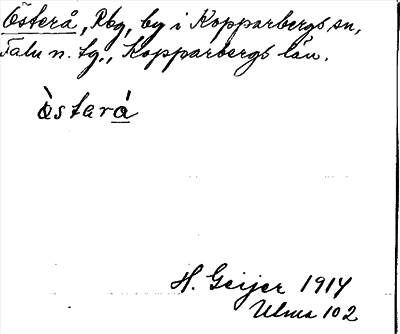 Österå, Rbg, by i Kopparbergs sn,
Falu n. tg., Kopparbergs län.
ò̀stərá
H. Geijer 1914
Ulma 102